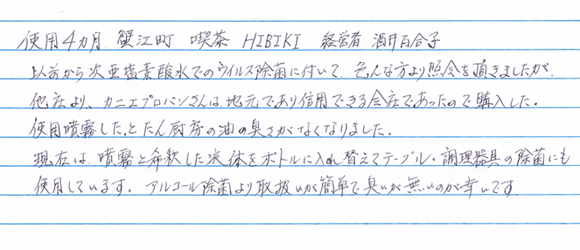 使用4カ月 蟹江町 喫茶 HIBIKI 経営者 酒井百合子
以前から次亜塩素酸水でのウイルス除菌に付いて、色んな方より照会を頂きましたが、
他店より、カニエプロパンさんは地元であり信用できる会店であったので購入した。
使用噴霧したとたん厨房の油の臭さがなくなりました。
現在は、噴霧と希釈した液体をボトルに入れ替えてテーブル・調理器具の除菌にも
使用しています。アルコール除菌より取扱いが簡単で臭いが無いのが幸いです